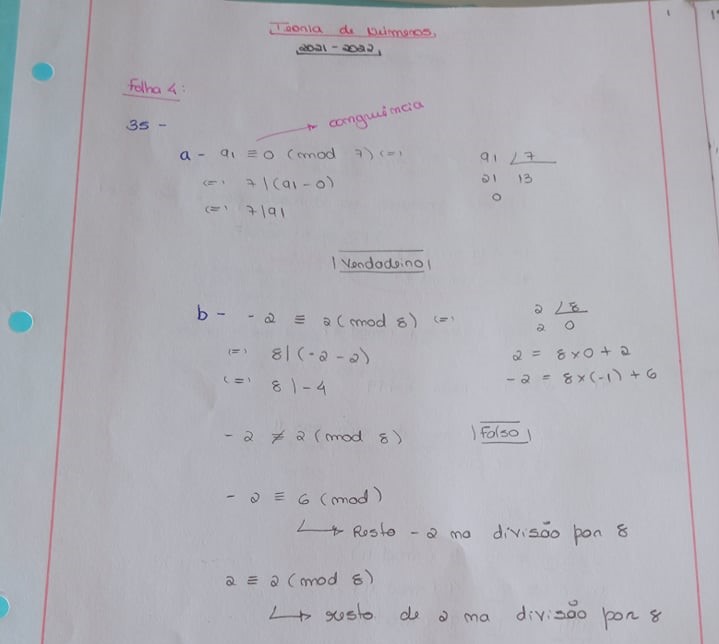 Teoria de Números
2021-2022
Folha 4:
35 -
congruência
a - 91 ≡ 0 (mod 7) (=)
(=) 7 | (91 - 0)
(=) 7 | 91
91 7
21 13
0
Verdadeiro
b - -2 ≡ 2 (mod 8) (=)
(=) 8 | (-2 -2)
(=) 8 | -4
2 8
2 0
2 = 8 x 0 + 2
-2 = 8 x (-1) + 6
-2 ≢ 2 (mod 8)
Falso
-2 ≡ 6 (mod)
↳ Resto -2 na divisão por 8
2 ≡ 2 (mod 8)
↳ resto de 2 na divisão por 8